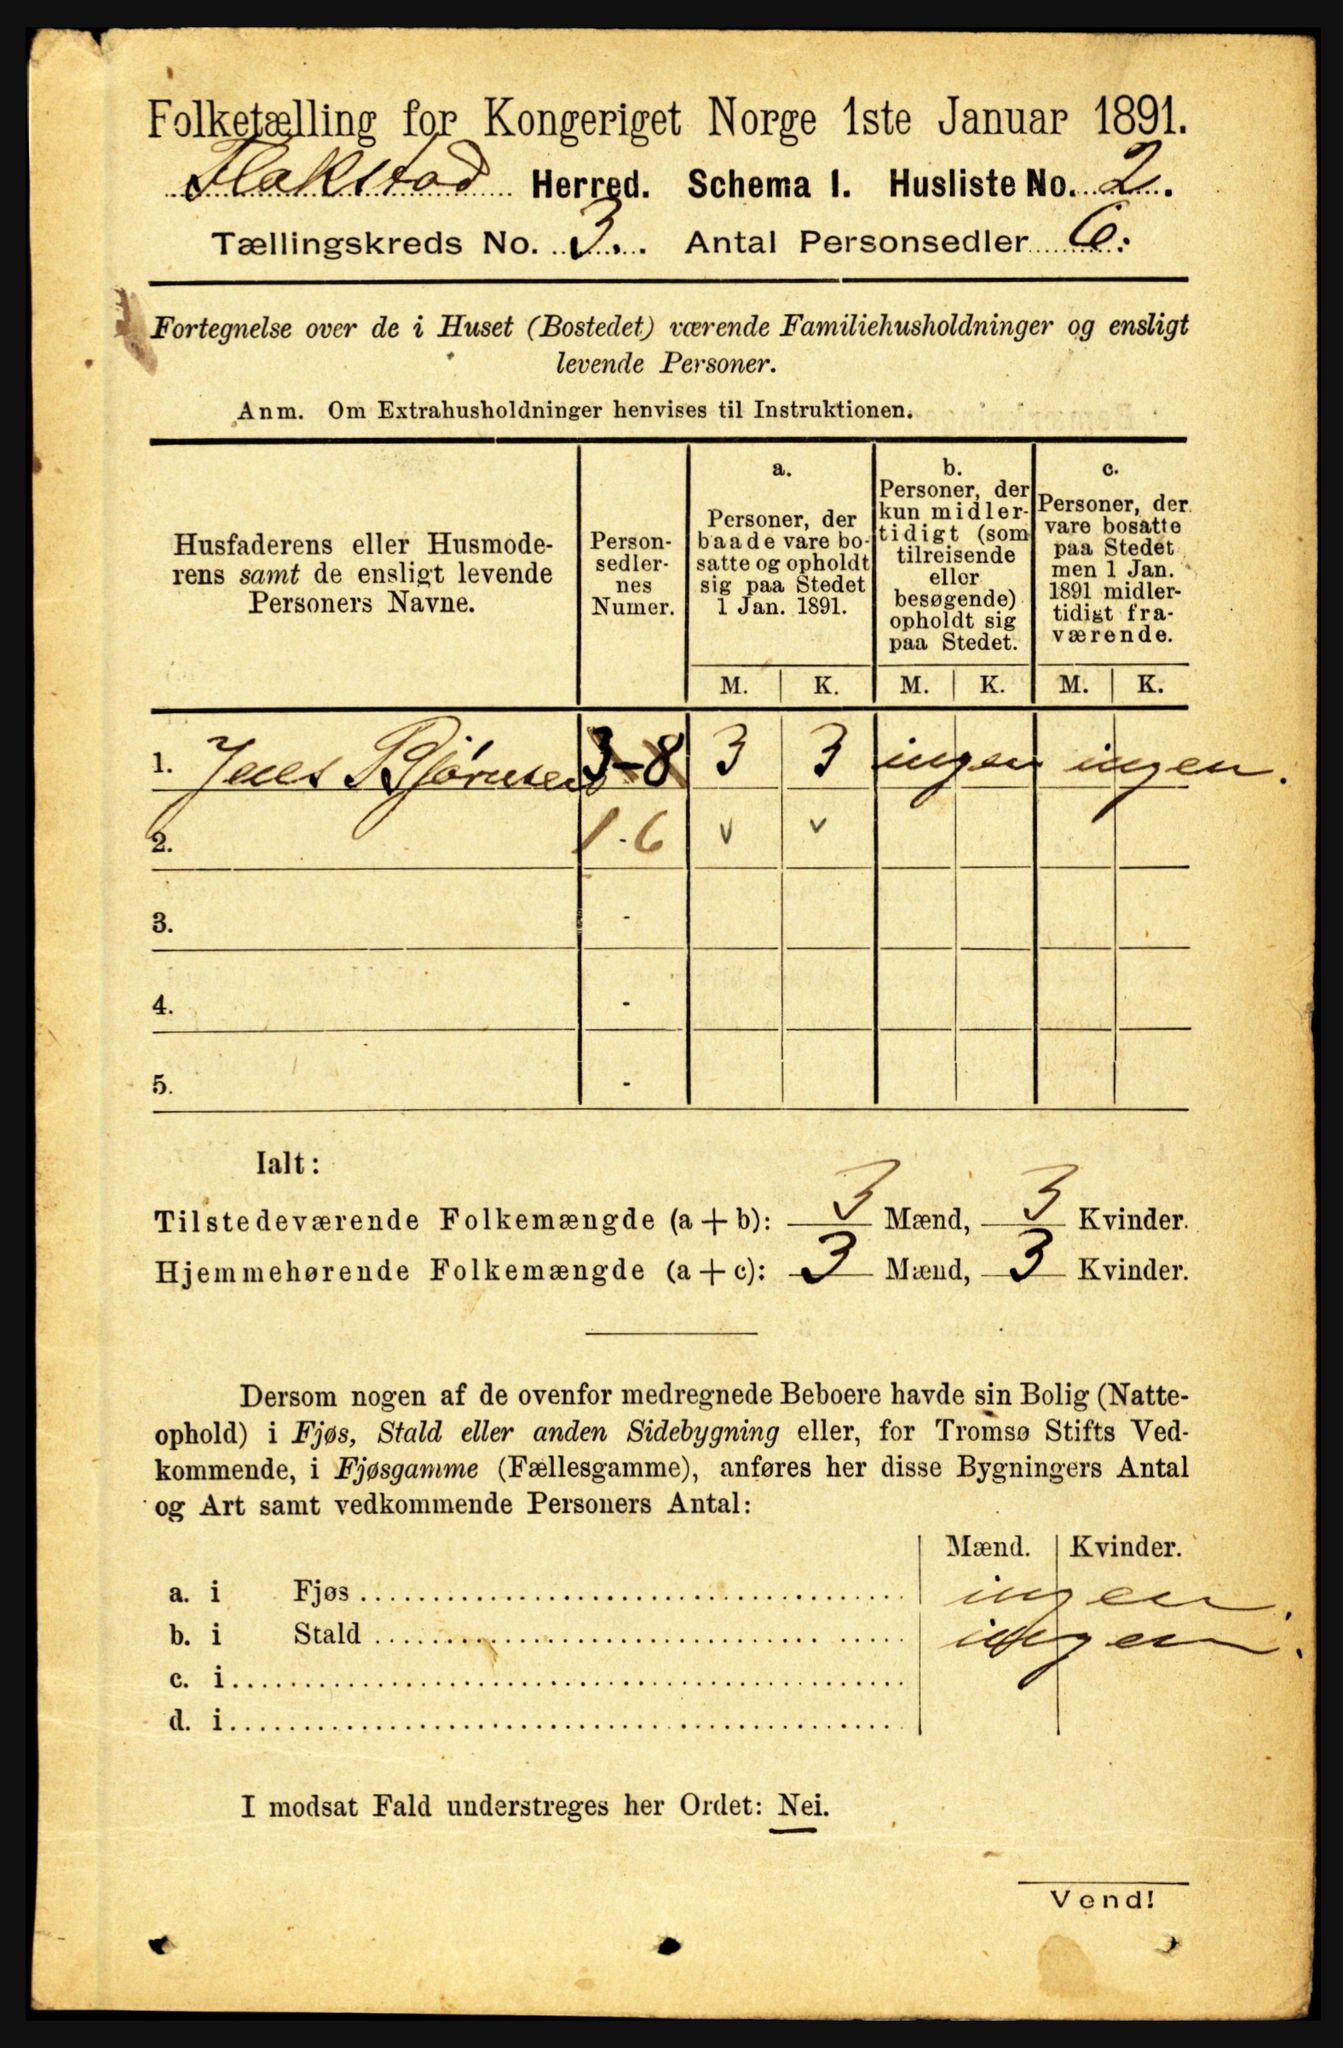 Folketælling for Kongeriget Norge 1ste Januar 1891.
Flakstad Herred. Schema I. Husliste No. 2.
Tællingskreds No. 3. Antal Personsedler 6.
Fortegnelse over de i Huset (Bostedet) værende Familiehusholdninger og ensligt
levende Personer.
Anm. Om Extrahusholdninger henvises til Instruktionen.
Husfaderens eller Husmode-
rens samt de ensligt levende
Personers Navne.
Person-
sedler-
nes
Numer.
a.
Personer, der
baade vare bo-
satte og opholdt
sig paa Stedet
1 Jan. 1891.
b.
Personer, der
kun midler-
tidigt (som
tilreisende
eller
besøgende)
opholdt sig
paa Stedet.
c.
Personer, der
vare bosatte
paa Stedet
men 1 Jan.
1891 midler-
tidigt fra-
værende.
M. K. M. K. M. K.
1. Jens Bjørnsen 3-8 3 3 ingen ingen.
2. 1-6 v v
3. -
4. -
5. -
Ialt:
Tilstedeværende Folkemængde (a + b): 3 Mænd, 3 Kvinder.
Hjemmehørende Folkemængde (a + c): 3 Mænd, 3 Kvinder.
Dersom nogen af de ovenfor medregnede Beboere havde sin Bolig (Natte-
ophold) i Fjøs, Stald eller anden Sidebygning eller, for Tromsø Stifts Ved-
kommende, i Fjøsgamme (Fællesgamme), anføres her disse Bygningers Antal
og Art samt vedkommende Personers Antal:
Mænd. Kvinder.
a. i Fjøs ingen.
b. i Stald ingen.
c. i
d. i
I modsat Fald understreges her Ordet: Nei.
Vend!